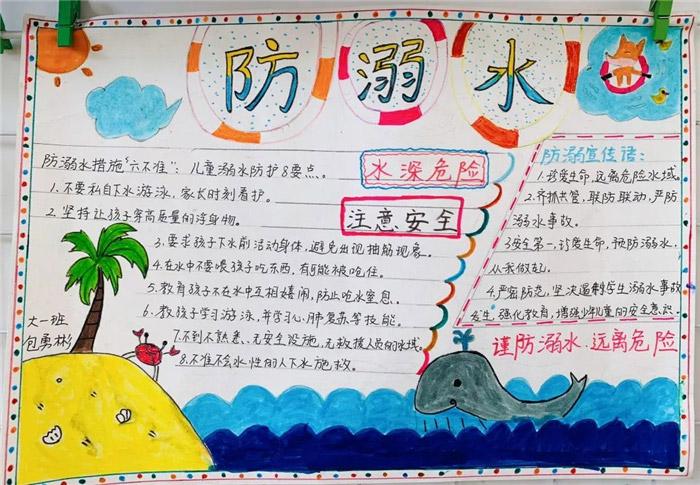 防溺水
防溺水措施“六不准”：儿童溺水防护8要点。
1.不要私自下水游泳，家长时刻看护。
2.坚持让孩子穿高质量的浮身物。
3.要求孩子下水前活动身体，避免出现抽筋现象。
4.在水中不要喂孩子吃东西，有可能被呛住。
5.教育孩子不在水中互相嬉闹，防止呛水窒息。
6.教孩子学习游泳，并学习心肺复苏等技能。
7.不到不熟悉、无安全设施、无救援人员的水域。
8.不准不会水性的人下水施救。
水深危险
注意安全
防溺宣传语：
1.珍爱生命，远离危险水域。
2.齐抓共管，联防联动，严防
溺水事故。
3安全第一，珍爱生命，预防溺水，
从我做起。
4.严密防范，坚决遏制学生溺水事故
发生，强化教育，增强少年儿童的安全意识
谨防溺水 远离危险
大一班
包勇彬